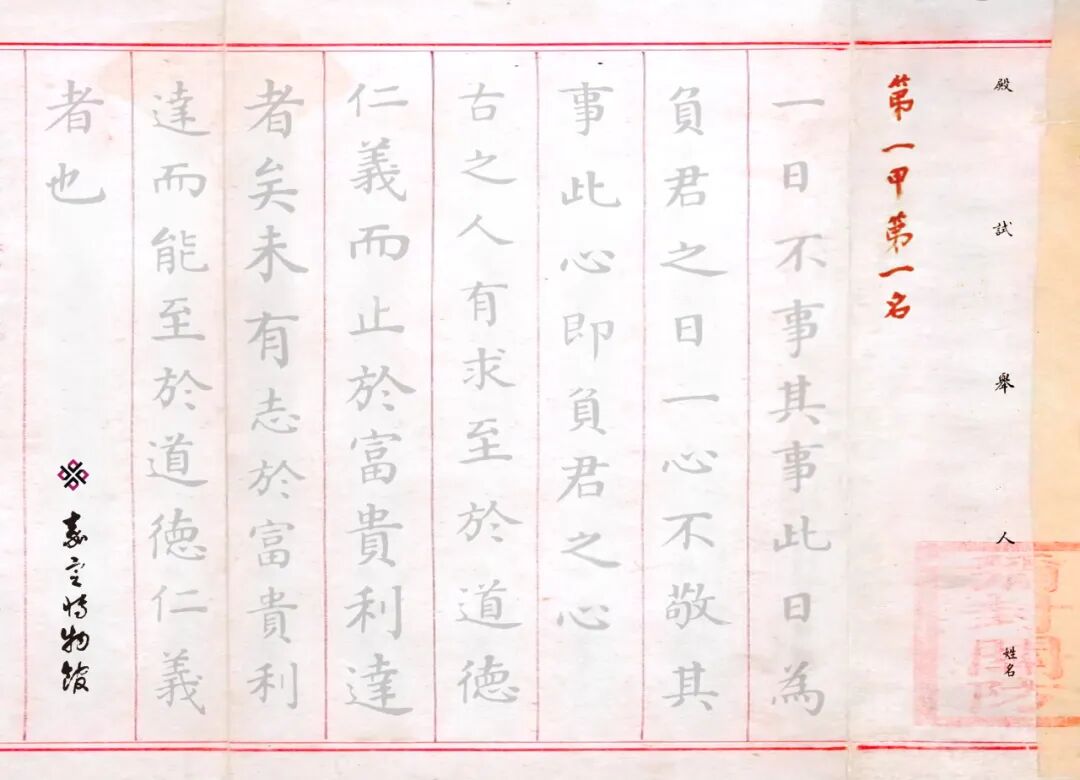 殿試舉人 姓名
第一甲第一名
一日不事其事此日為
負君之日一心不敬其
事此心即負君之心
古之人有求至於道德
仁義而止於富貴利達
者矣未有志於富貴利
達而能至於道德仁義
者也
嘉定博物館